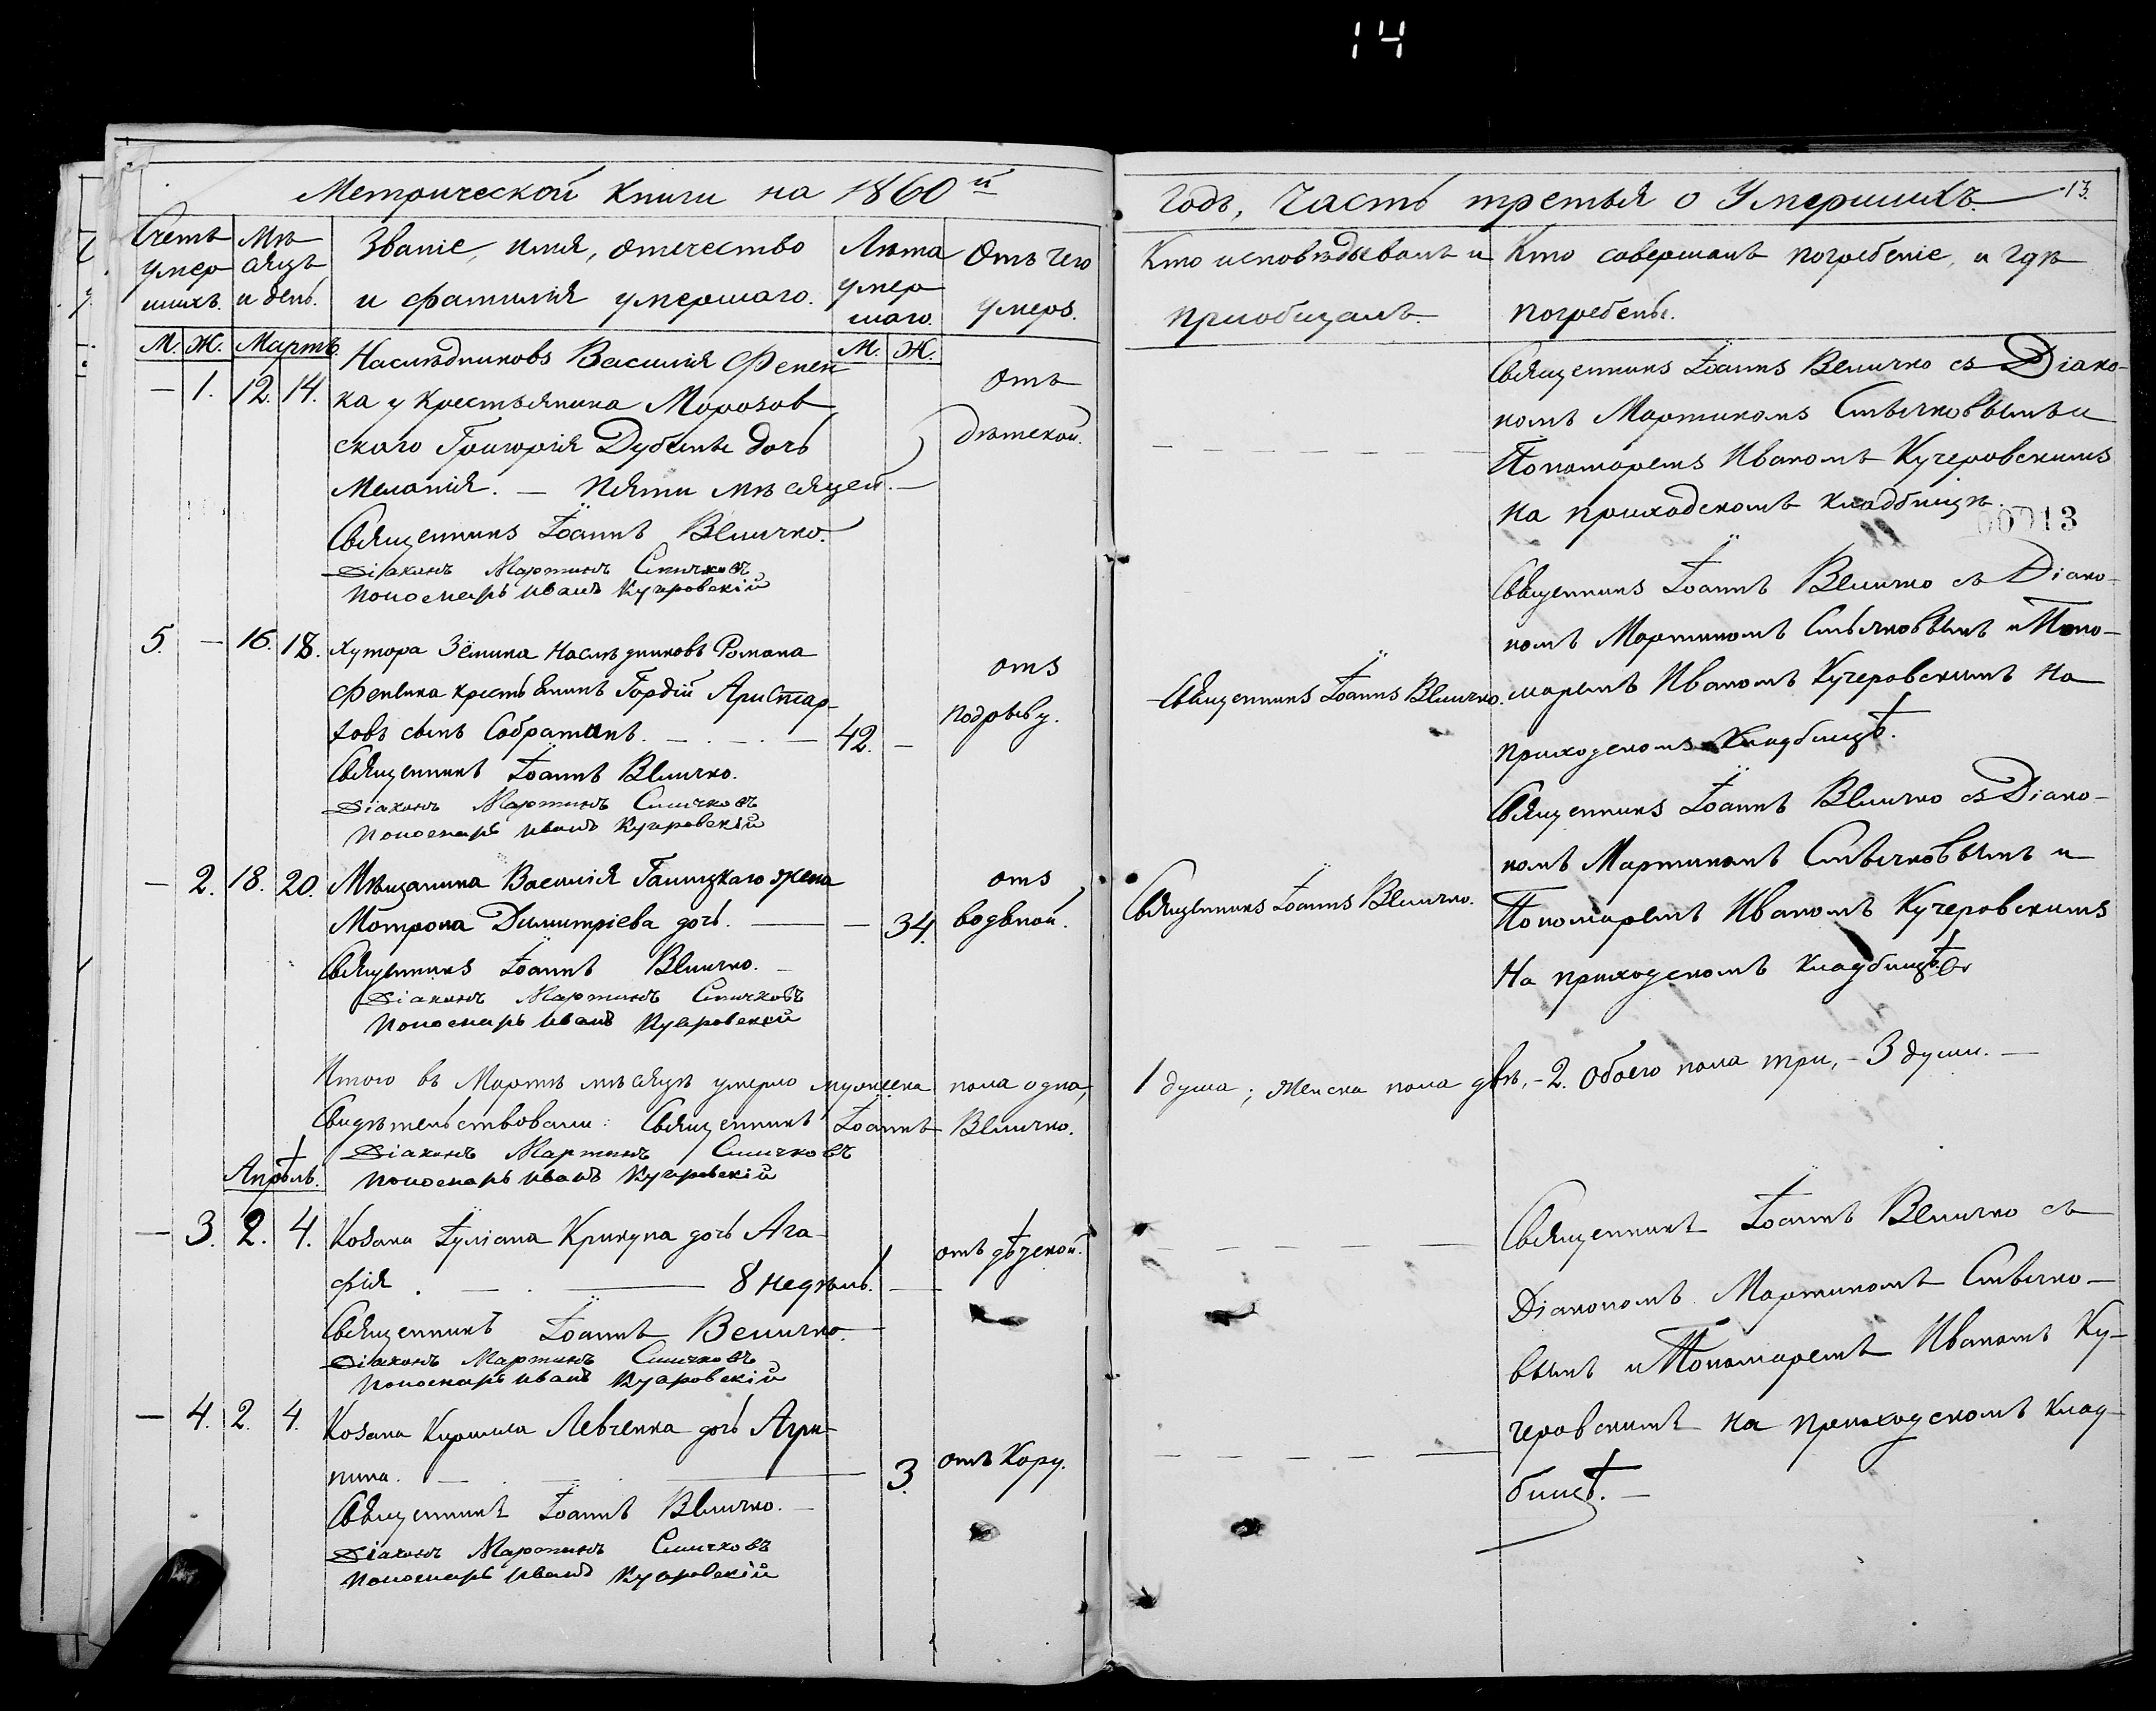 14
Метрической книги на 1860й
Счетъ умершихъ.
Мѣсяцъ и день.
Званіе, имя, отечество
и фамилія умершаго.
Лѣта умершаго.
Отъ чего
умеръ.
М. Ж. Мартъ. М. Ж.
— 1. 12. 14.
Наслѣдниковъ Василія Фенен
ка у крестьянина Морозов
ского Григорія Дубины дочь
Меланія. — Пяти мѣсяцей. —
отъ
дѣтской.
Священникъ Іоаннъ Величко.
Діаконъ Мартинъ Спичковъ
Пономарь Иванъ Кучеровскій
5. — 16. 18. хутора Зёмина наслѣдниковъ Романа
Фененка крестьянинъ Гордій Аристар-
ховъ сынъ Собратинъ. — 42. —
отъ
подрыву.
Священникъ Іоаннъ Величко.
Діаконъ Мартинъ Спичковъ
Пономарь Иванъ Кучеровскій
— 2. 18. 20. Мѣщанина Василія Галицкаго жена
Мотрона Димитріева дочь. — — 34.
отъ
водяной.
Священникъ Іоаннъ Величко.
Діаконъ Мартинъ Спичковъ
Пономарь Иванъ Кучеровскій
Итого въ Мартѣ мѣсяцѣ умерло мужеска пола одна,
Свидѣтельствовали: Священникъ Іоаннъ Величко.
Діаконъ Мартинъ Спичковъ
Пономарь Иванъ Кучеровскій
Апрѣль.
— 3. 2. 4. Козака Іуліана Крикуна дочь Ага-
фія . — . — 8 недѣль. — отъ дѣтской.
Священникъ Іоаннъ Величко.
Діаконъ Мартинъ Спичковъ
Пономарь Иванъ Кучеровскій
— 4. 2. 4. Козака Кирилла Левченка дочь Агри-
пина. — . — 3. отъ Кору.
Священникъ Іоаннъ Величко. —
Діаконъ Мартинъ Спичковъ
Пономарь Иванъ Кучеровскій
годъ, Часть третья о Умершихъ. 13.
Кто исповѣдывалъ и
приобщалъ.
Кто совершалъ погребеніе, и гдѣ
погребенъ.
Священникъ Іоаннъ Величко съ Діако-
номъ Мартиномъ Спичковымъ и
Пономаремъ Иваномъ Кучеровскимъ
на приходскомъ кладбищѣ.
00013
Священникъ Іоаннъ Величко.
Священникъ Іоаннъ Величко съ Діако-
номъ Мартиномъ Спичковымъ и Поно-
маремъ Иваномъ Кучеровскимъ на
приходскомъ кладбищѣ.
Священникъ Іоаннъ Величко.
Священникъ Іоаннъ Величко съ Діако-
номъ Мартиномъ Спичковымъ и
Пономаремъ Иваномъ Кучеровскимъ
на приходскомъ кладбищѣ.
1 душа; женска пола двѣ, - 2. Обоего пола три, - 3 души. —
Священникъ Іоаннъ Величко съ
Діакономъ Мартиномъ Спичко-
вымъ и Пономаремъ Иваномъ Ку-
черовскимъ на приходскомъ клад-
бищѣ. —